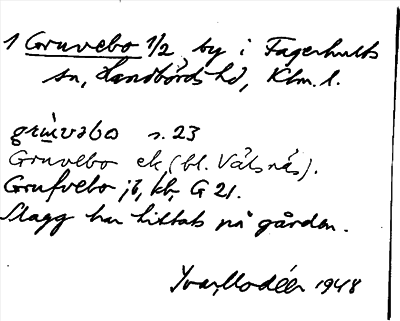 1 Gruvebo 1/2, by i Fagerhults
sn, Handbörds hd, Klm. l.
grùvəbo s. 23
Gruvebo ek, (bl. Vålsnäs).
Grufvebo jb, kb, G 21.
Slagg har hittats på gården.
Ivar Modéer 1948